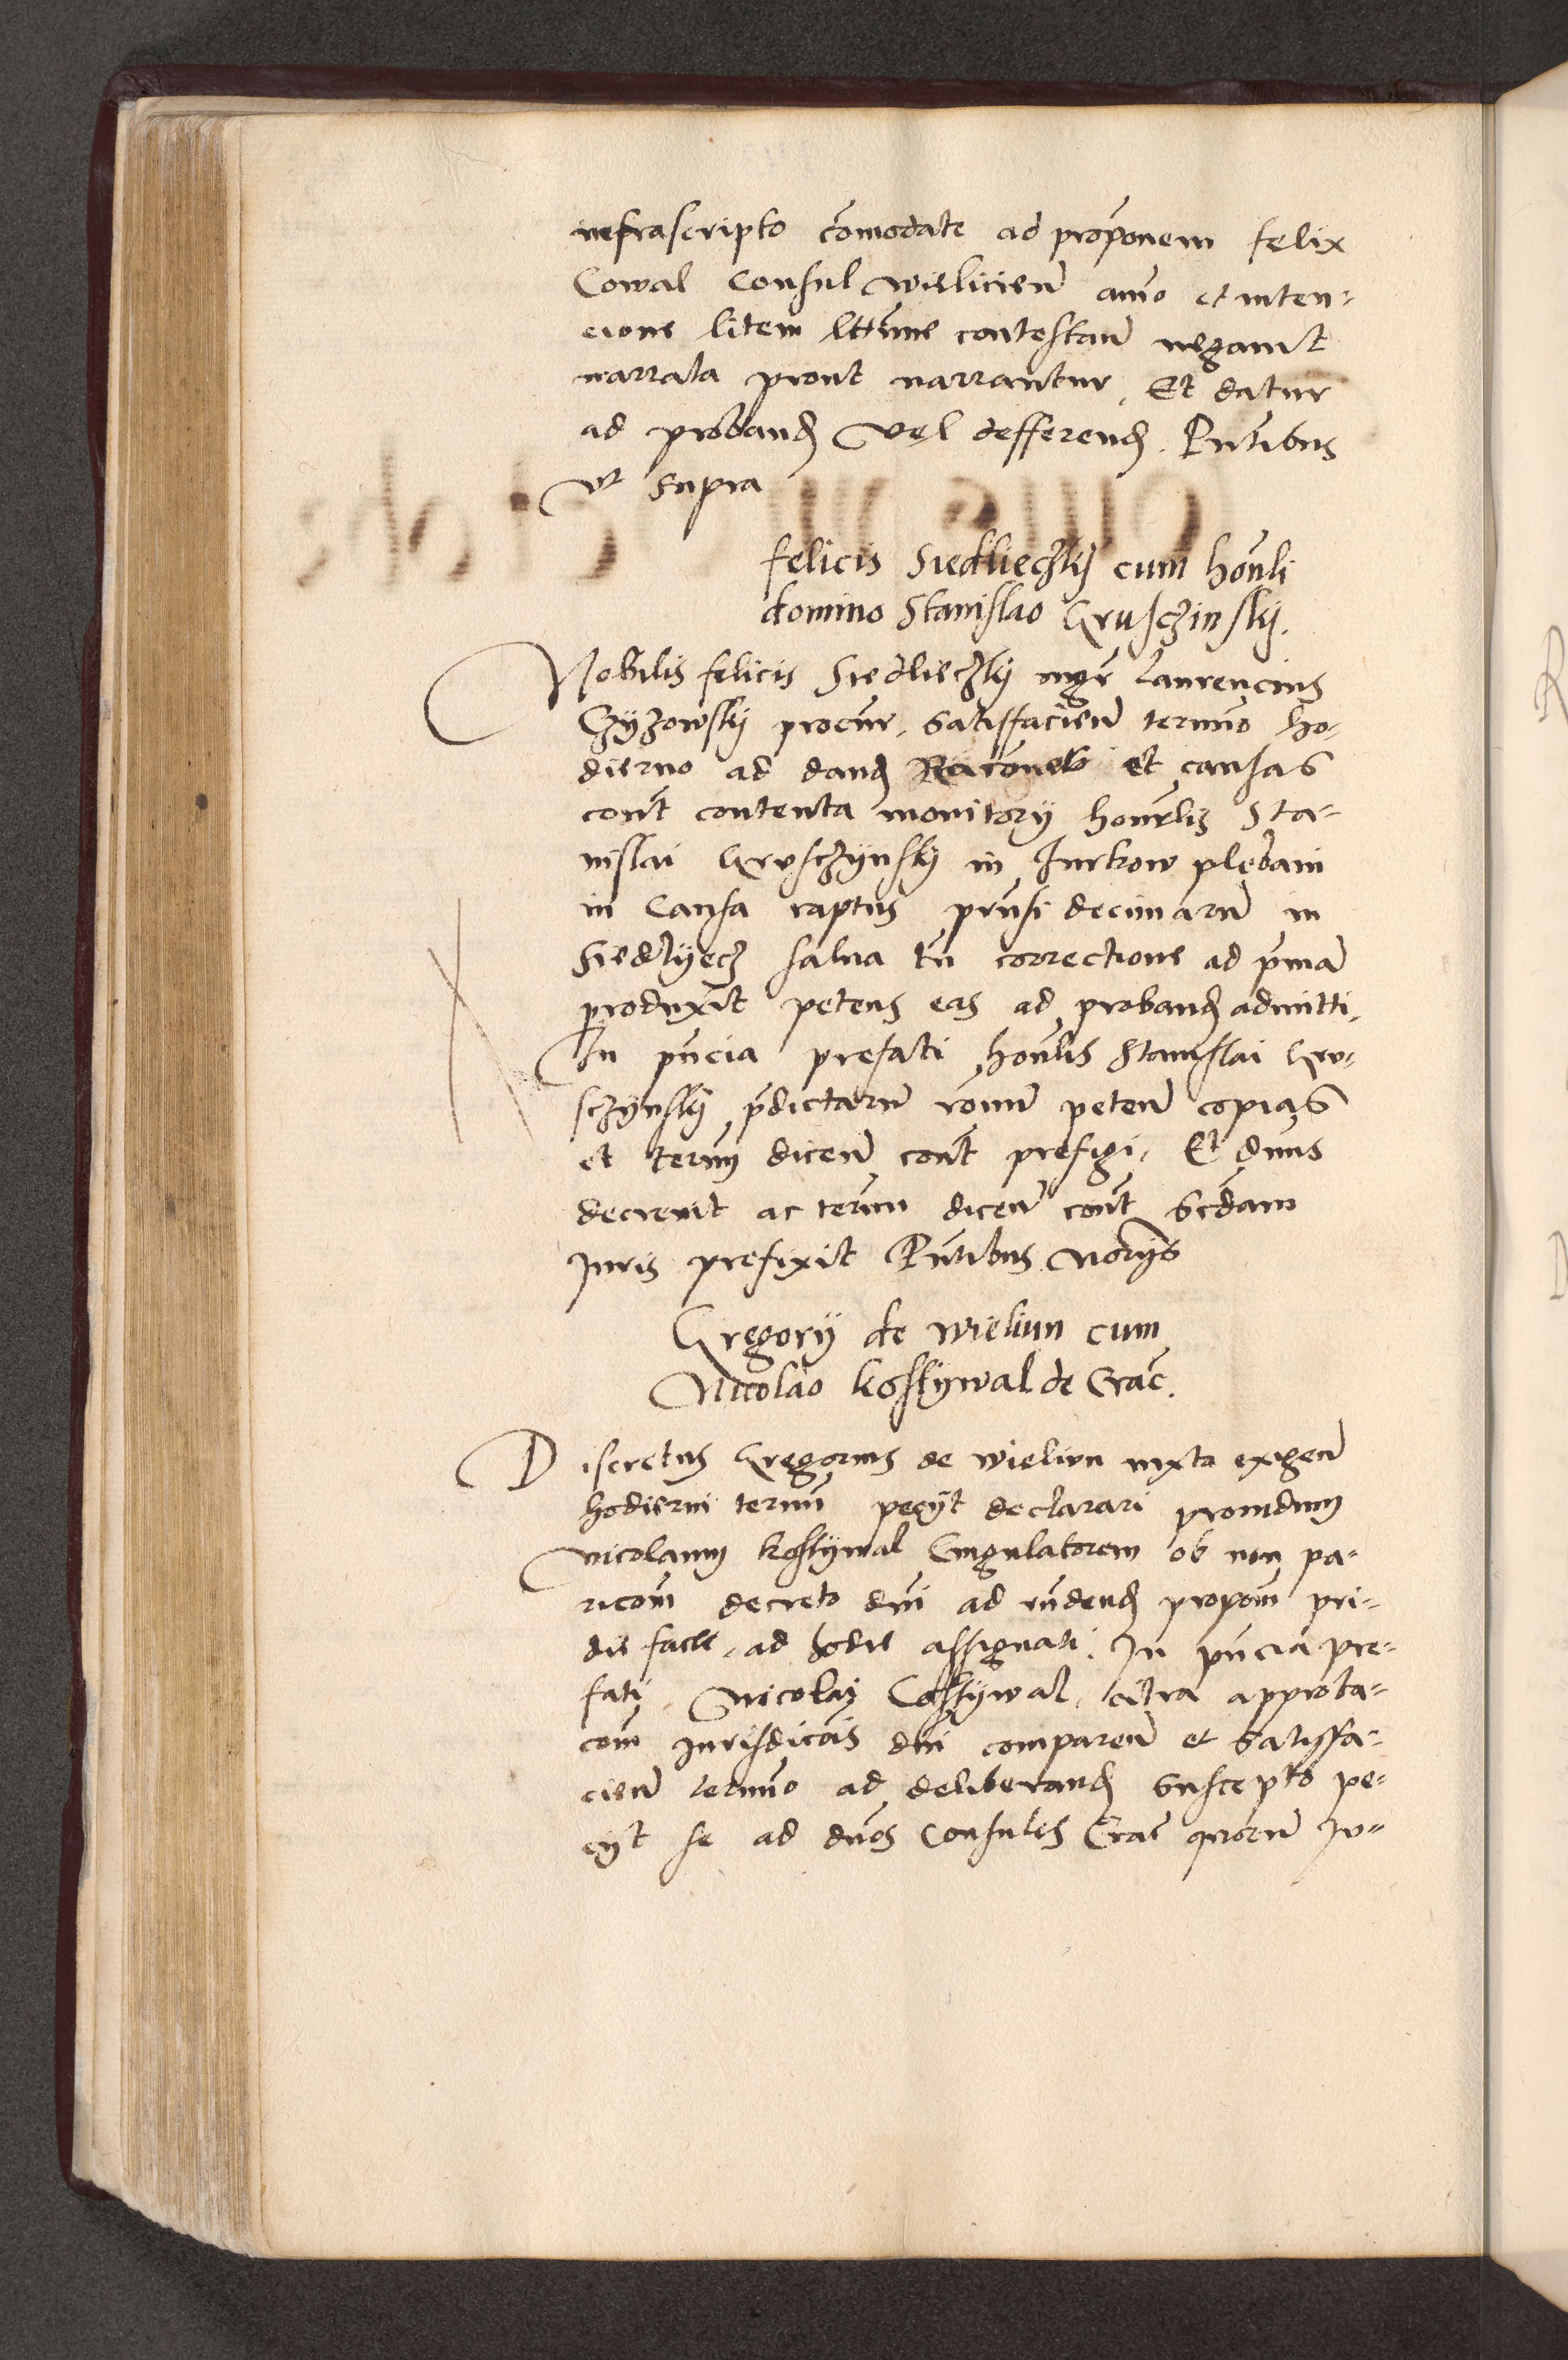 infrascripto comodate ad proponem felix
Cowal Consul wislicien animo et inten-
cione litem lttime contestan negavit
narrata prout narrantur. Et datur
ad proband vel defferend. Pntibus
vt supra
felicis Siedlieczkÿ cum honli
domino Stanislao Gruschinskÿ.
Nobilis felicis Siedlieczkÿ mgr Laurencius
Czÿzowskÿ procur. satisfacien termino ho-
dierno ad dand Raciones et causas
cont contenta monitorÿ honrlis Sta-
nislai Gruschÿnskÿ in Jurkow plebani
in Causa raptus prnsi decimarum in
Siedlÿecz salua tn correctione ad pma
produxit petens eas ad proband admitti.
In pncia prefati honlis Stanislai Gru-
schÿnskÿ pdictarum ronum peten copias
et termin dicen cont prefigi. Et dnus
decrevit ac termin dicen cont scdam
Juris prefixit Pntibus Notarÿs
Gregorÿ de wieliun cum
Nicolao kosszÿwal de Crac.
Discretus Gregorius de wieliun iuxta exigen
hodierni termini pecÿt declarari prouidum
Nicolaum kosszÿwal Cingulatorem ob non pa-
ricoem decreto dni ad rndend propoim pri-
die facte, ad hodie assignati. In pncia pre-
fati Nicolai Cosszÿwal, citra approba-
coem Jurisdicois dni comparen et satisfa-
cien termino ad deliberand suscepto pe-
cÿt se ad dnos Consules Crac quorum Ju-